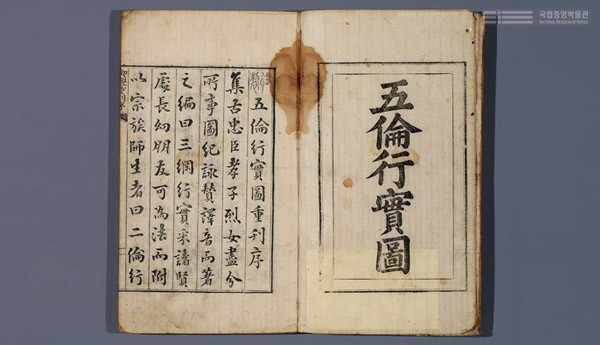 국립중앙박물관
NATIONAL MUSEUM OF KOREA
五倫行實圖
五倫行實圖重刊序
集古忠臣孝子烈女盡分
所事圖紀詠贊譯音而著
之編曰三綱行實采諸賢
處長幼朋友可為法而附
以宗族師生者曰二倫行